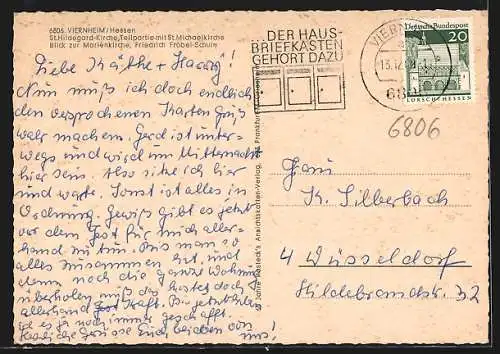 6806 VIERNHEIM/Hessen
St. Hildegard-Kirche, Teilpartie mit St. Michaelkirche
Blick zur Marienkirche, Friedrich Fröbel-Schule
Liebe Käthe + Harry!
Nun muß ich doch endlich
den versprochenen Karten Gruß
wahr machen. Gerd ist unter-
wegs und wird um Mitternacht
hier sein. Also sitze ich hier
und warte. Sonst ist alles in
Ordnung. Gewiß gibt es jetzt
vor dem Fest für mich aller-
hand zu tun. Bis man so
alles zusammen hat, und
dann noch die ganze Wohnung
überholen muß das kostet doch
allerhand Kraft. Bis jetzt habe
ich es ja noch immer geschafft.
Herzliche Grüsse Euch beiden von
uns!
DER HAUS-
BRIEFKASTEN
GEHÖRT DAZU
VIERN
13.12.
680
Deutsche Bundespost
20
LORSCH/HESSEN
6806
Frau
K. Silberbach
4 Düsseldorf
Hildebrandstr. 32